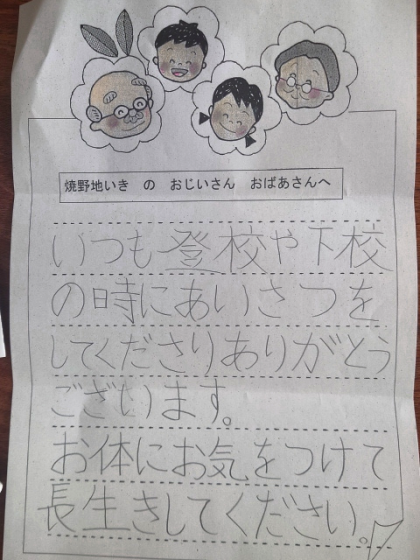 焼野地いき の おじいさん おばあさんへ
いつも登校や下校
の時にあいさつを
してくださりありがとう
ございます。
お体にお気をつけて
長生きしてください。